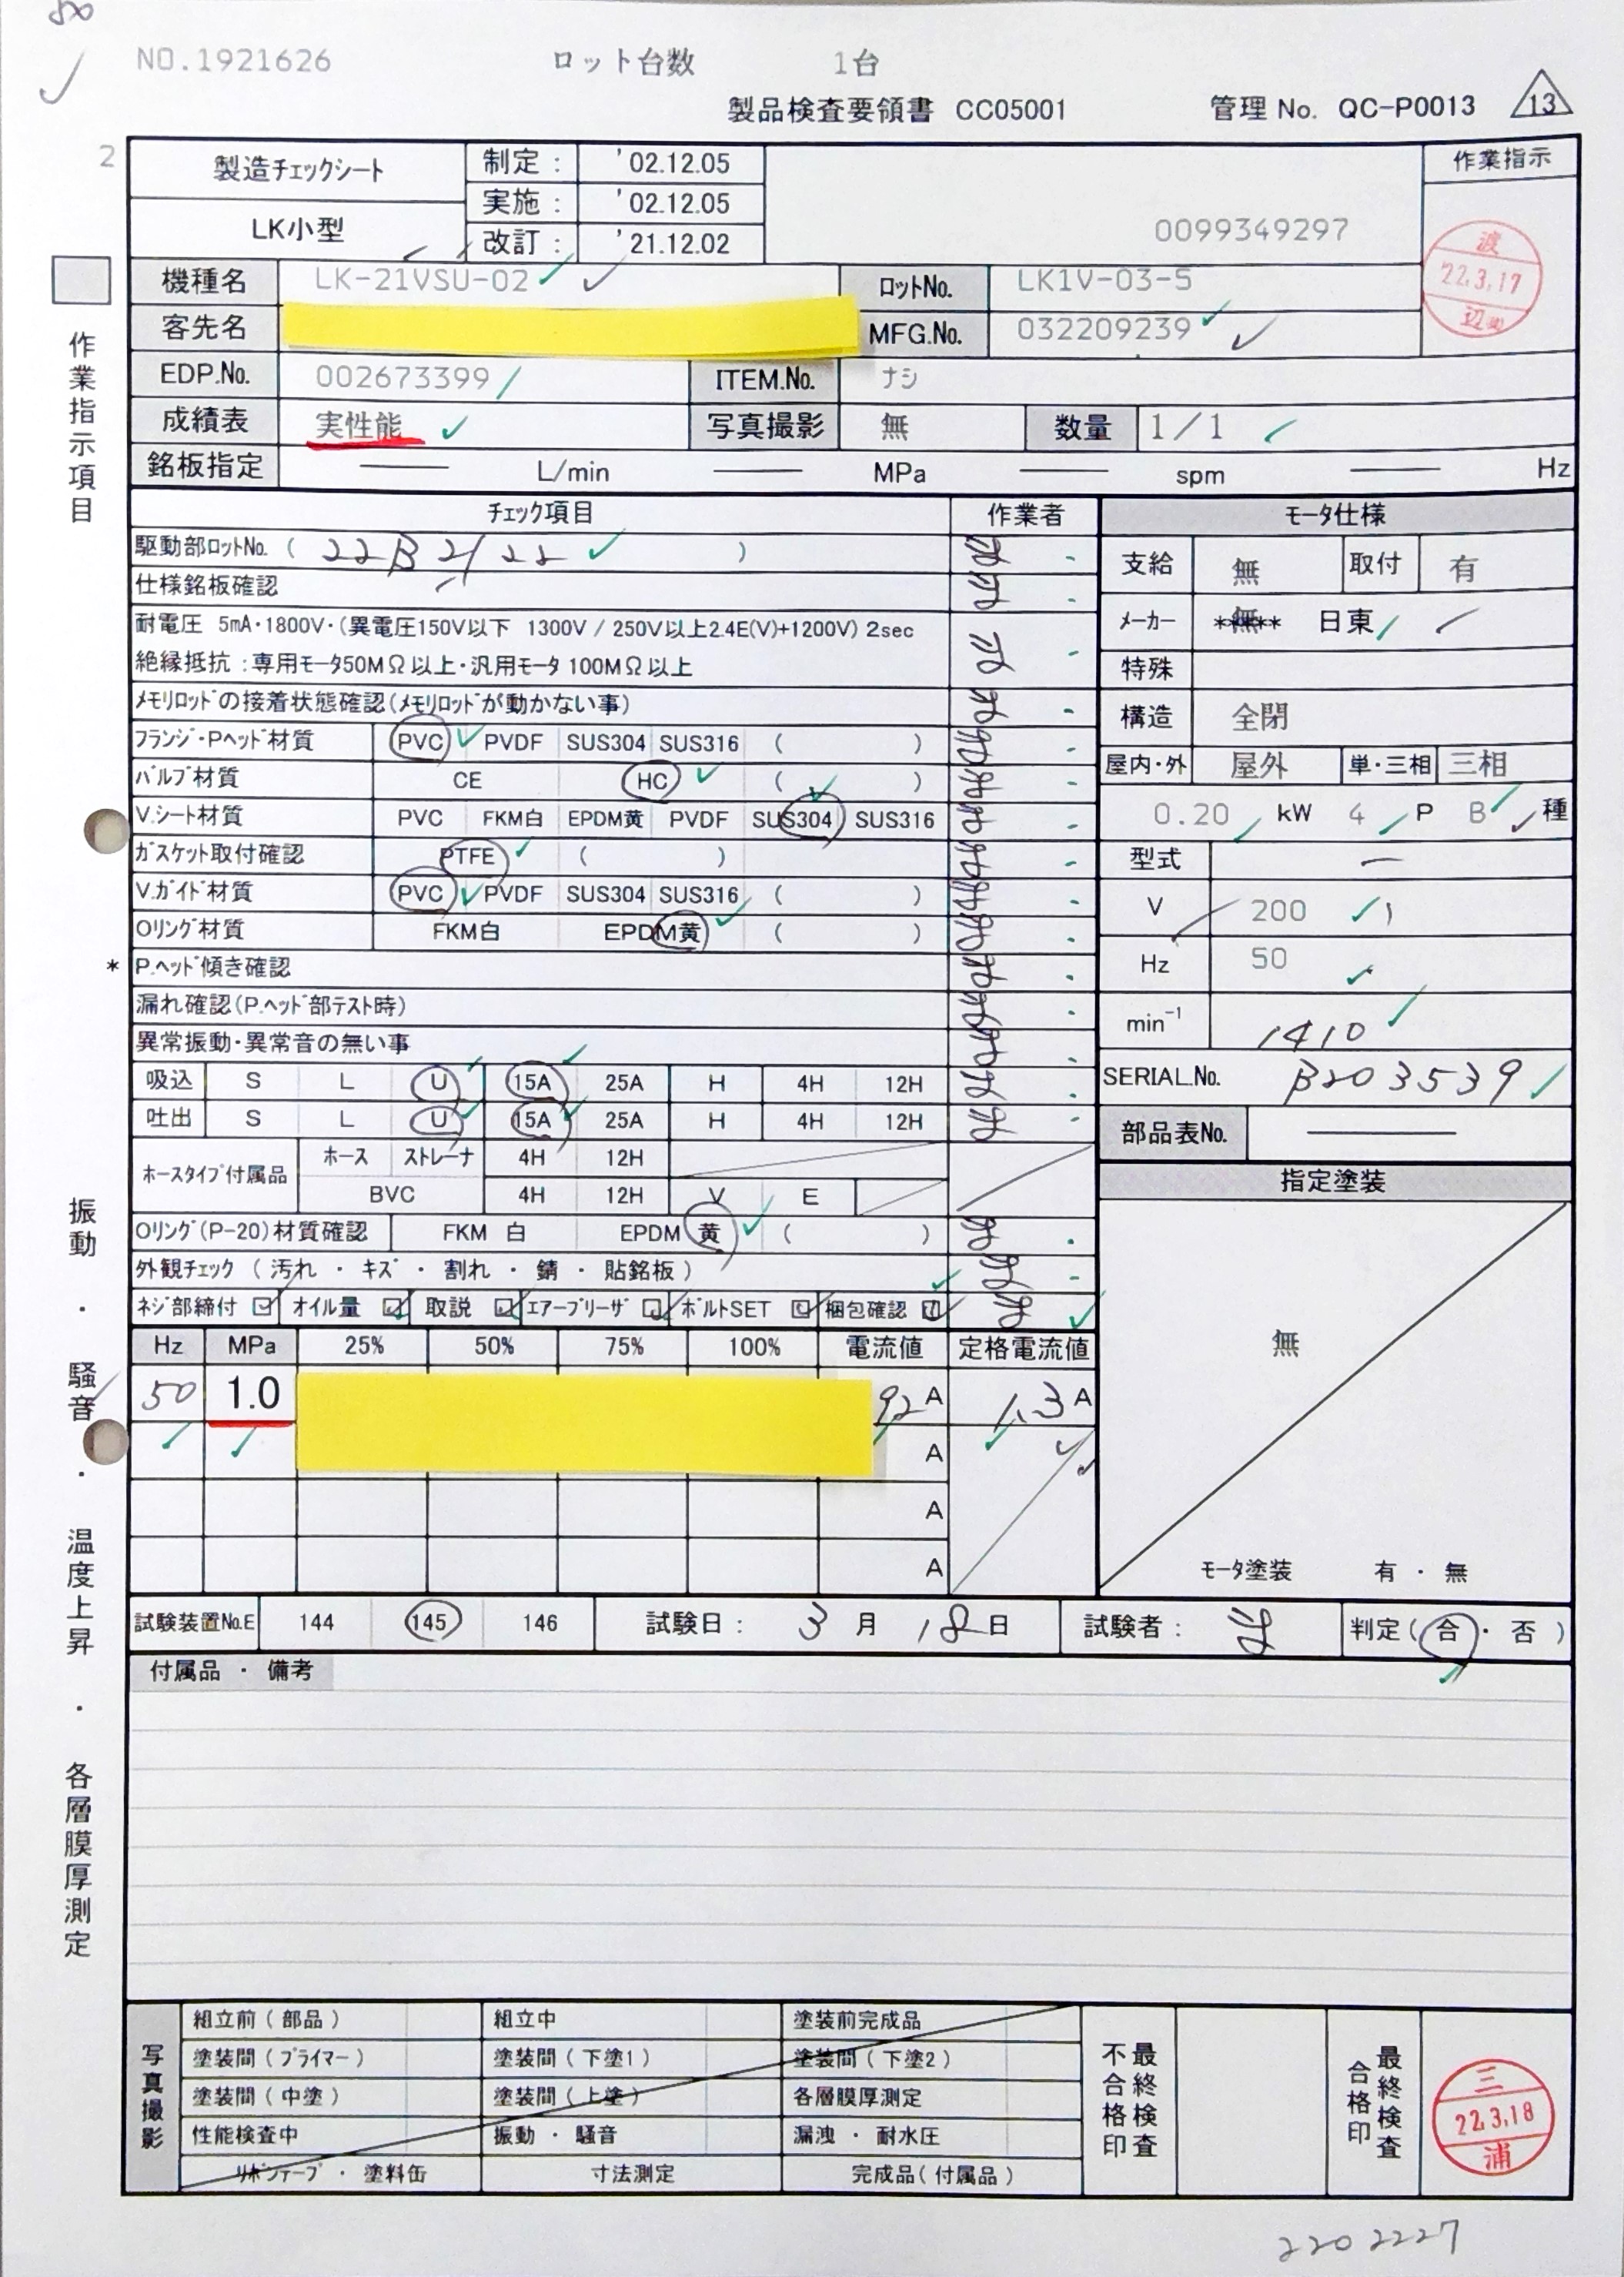 NO.1921626 ロット台数 1台
製品検査要領書 CC05001 管理 No. QC-P0013 13
2
製造チェックシート 制定: '02.12.05 作業指示
実施: '02.12.05
LK小型 改訂: '21.12.02 0099349297
渡 22.3.17 辺
機種名 LK-21VSU-02 ロットNo. LK1V-03-5
客先名 MFG.No. 032209239
EDP.No. 002673399 ITEM.No. ナシ
成績表 実性能 写真撮影 無 数量 1/1
銘板指定 L/min MPa spm Hz
作業指示項目
振動・騒音・温度上昇・各層膜厚測定
チェック項目 作業者
駆動部ロットNo. ( )
仕様銘板確認
耐電圧 5mA・1800V・(異電圧150V以下 1300V / 250V以上2.4E(V)+1200V) 2sec
絶縁抵抗:専用モータ50MΩ以上・汎用モータ 100MΩ以上
メモリロッドの接着状態確認(メモリロッドが動かない事)
フランジ・Pヘッド材質 PVC PVDF SUS304 SUS316 ( )
バルブ材質 CE HC ( )
V.シート材質 PVC FKM白 EPDM黄 PVDF SUS304 SUS316
ガスケット取付確認 PTFE ( )
V.ガイド材質 PVC PVDF SUS304 SUS316 ( )
Oリング材質 FKM白 EPDM黄 ( )
* P.ヘッド傾き確認
漏れ確認(P.ヘッド部テスト時)
異常振動・異常音の無い事
吸込 S L U 15A 25A H 4H 12H
吐出 S L U 15A 25A H 4H 12H
ホースタイプ付属品 ホース ストレーナ 4H 12H
BVC 4H 12H V E
Oリング(P-20)材質確認 FKM 白 EPDM 黄 ( )
外観チェック ( 汚れ ・ キズ ・ 割れ ・ 錆 ・ 貼銘板 )
ネジ部締付 オイル量 取説 エアーブリーザ ボルトSET 梱包確認
モータ仕様
支給 無 取付 有
メーカー **無** 日東
特殊
構造 全閉
屋内・外 屋外 単・三相 三相
0.20 kW 4 P B 種
型式 —
V 200
Hz 50
min⁻¹ 1410
SERIAL.No. B203539
部品表No.
指定塗装
無
モータ塗装 有 ・ 無
Hz MPa 25% 50% 75% 100% 電流値 定格電流値
50 1.0 92 A 1.3 A
A
A
A
試験装置No.E 144 145 146 試験日: 3 月 18 日 試験者: 判定( 合 ・ 否 )
付属品 ・ 備考
写真撮影
組立前(部品) 組立中 塗装前完成品
塗装間(プライマー) 塗装間(下塗1) 塗装間(下塗2)
塗装間(中塗) 塗装間(上塗) 各層膜厚測定
性能検査中 振動 ・ 騒音 漏洩 ・ 耐水圧
リボンテープ ・ 塗料缶 寸法測定 完成品(付属品)
最終検査不合格印
最終検査合格印
三 22.3.18 浦
2202227